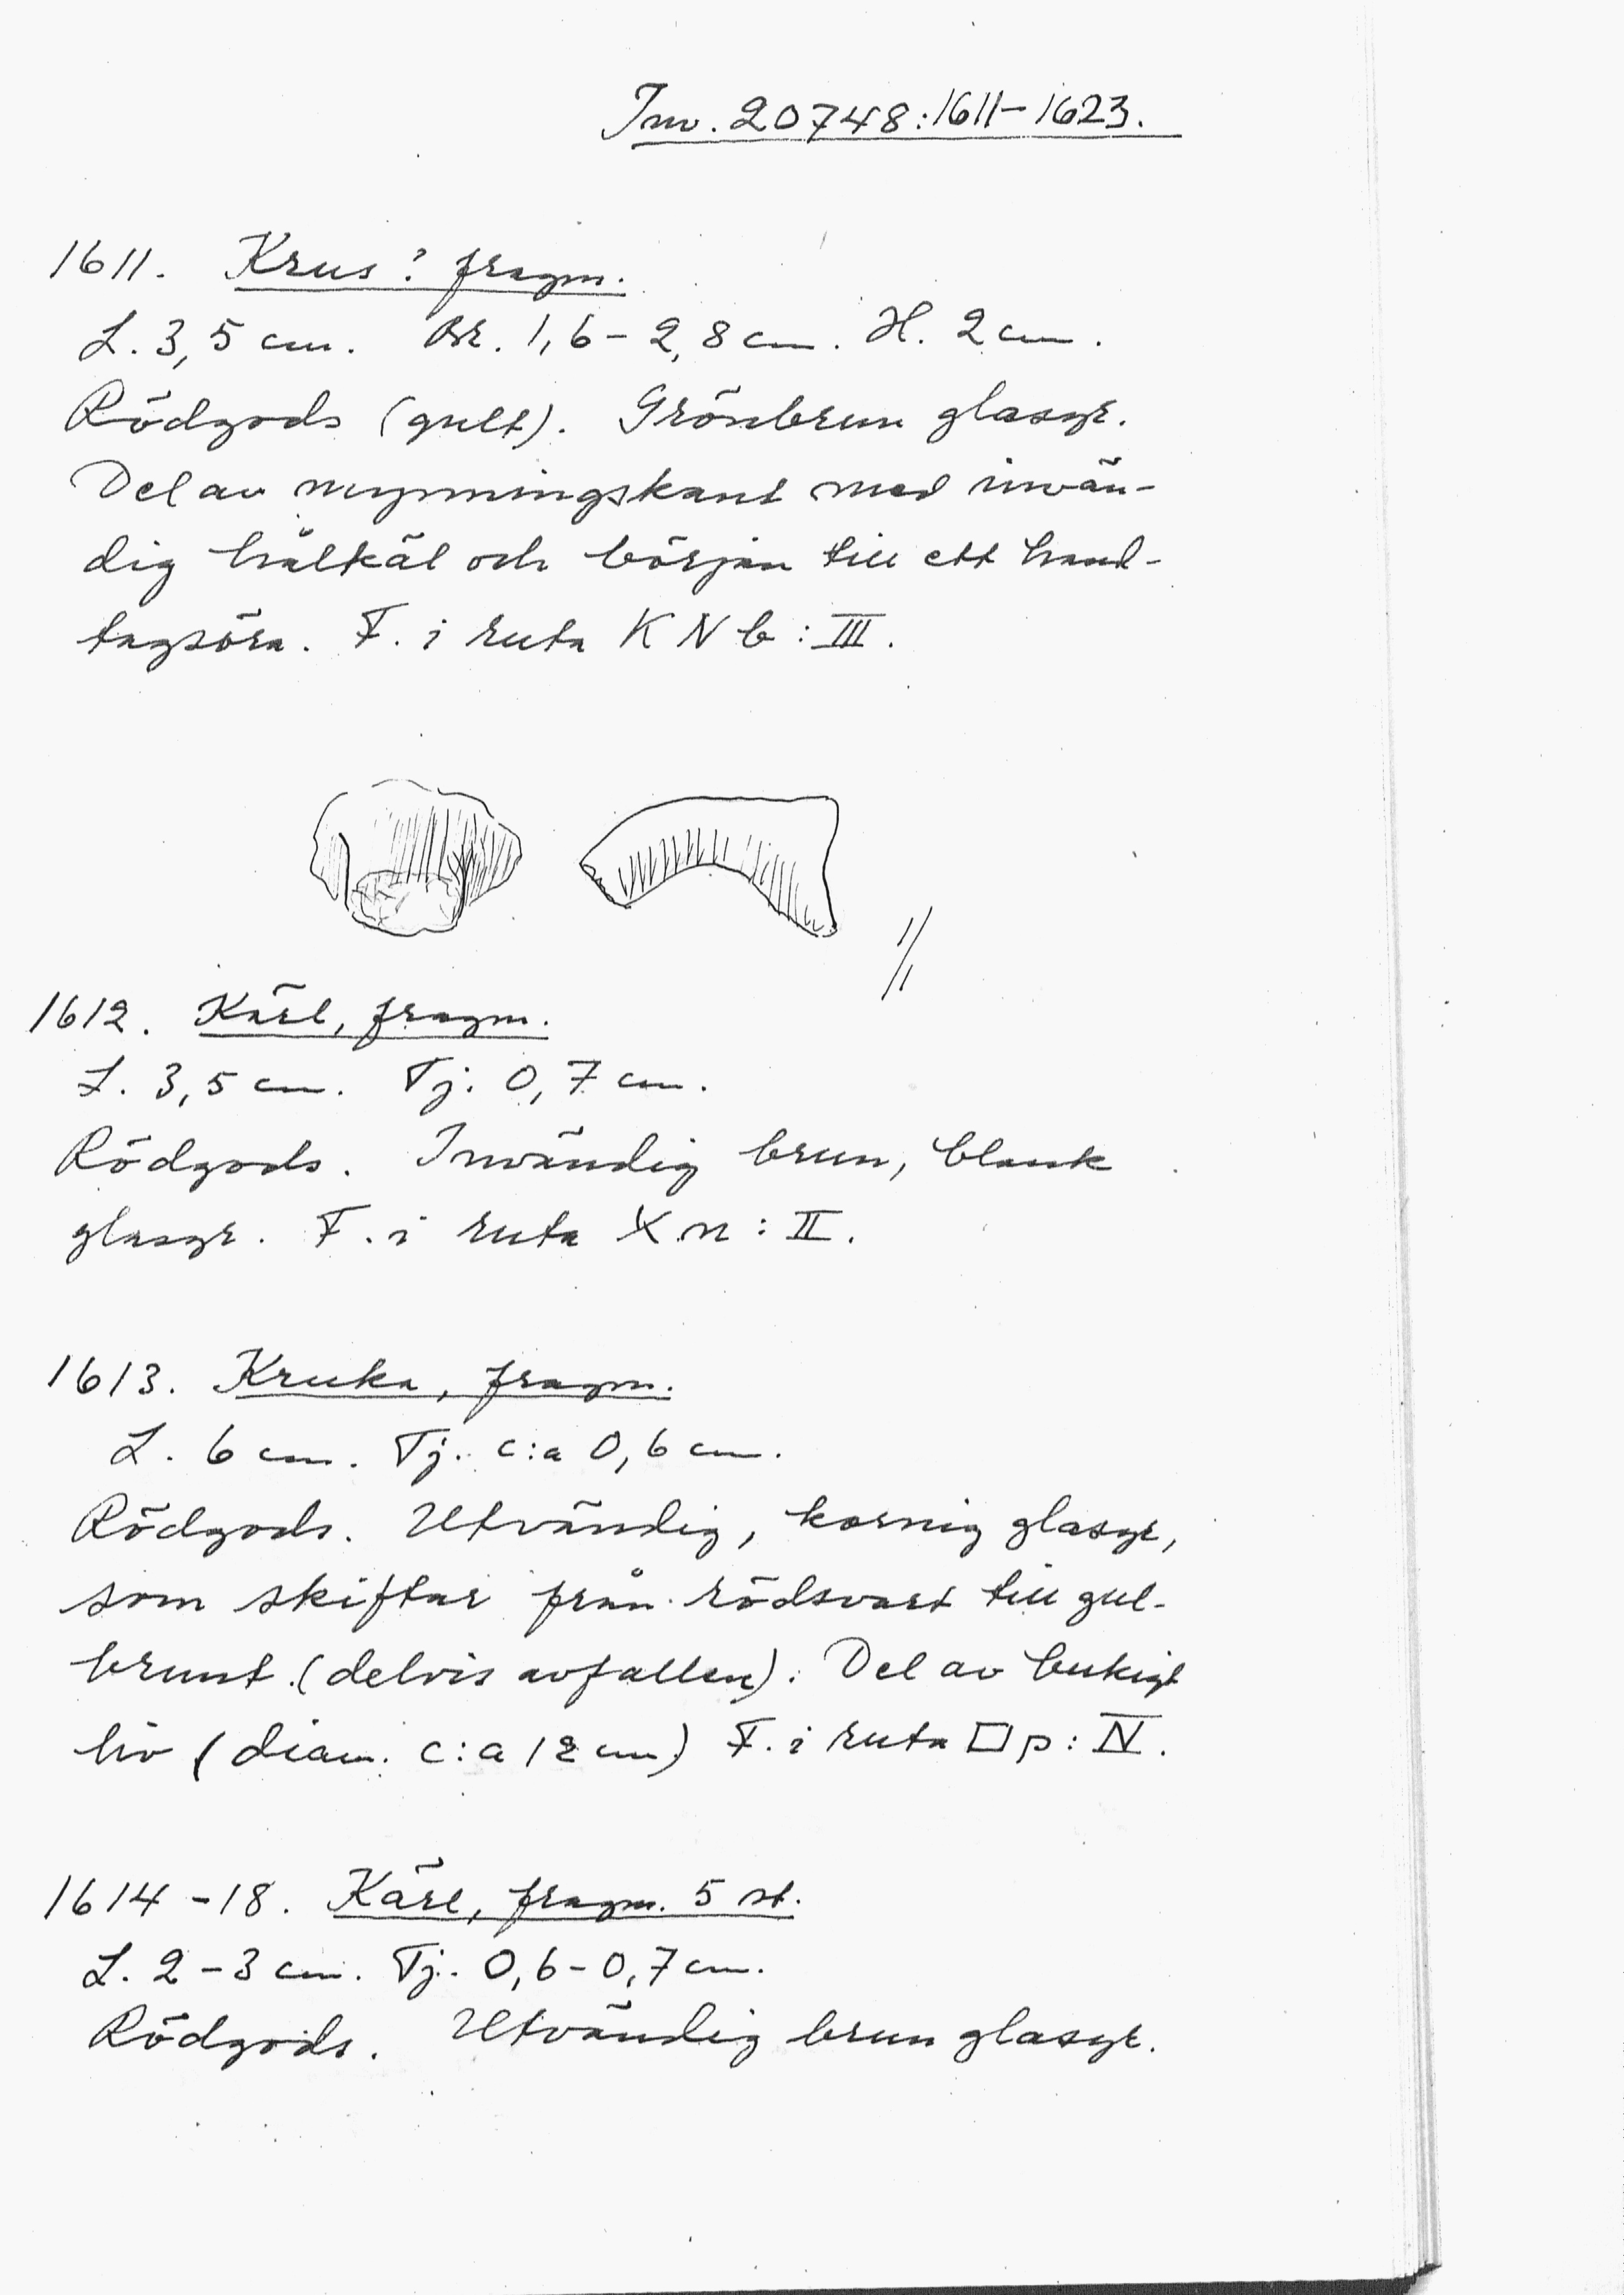 Inv. 20748:1611-1623.
1611. Krus? fragm.
L. 3,5 cm. Br. 1,6-2,8 cm. H. 2 cm.
Rödgods (gult). Grönbrun glasyr.
Del av mynningskant med invän-
dig hålkäl och början till ett hand-
tagsöra. F. i ruta K N b: III.
1/1
1612. Kärl, fragm.
L. 3,5 cm. Tj. 0,7 cm.
Rödgods. Invändig brun, blank
glasyr. F. i ruta X n: II.
1613. Kruka, fragm.
L. 6 cm. Tj. c:a 0,6 cm.
Rödgods. Utvändig, kornig glasyr,
som skiftar från rödsvart till gul-
brunt (delvis avfallen). Del av bukigt
liv (diam. c:a 12 cm) F. i ruta □ p: IV.
1614-18. Kärl, fragm. 5 st.
L. 2-3 cm. Tj. 0,6-0,7 cm.
Rödgods. Utvändig brun glasyr.